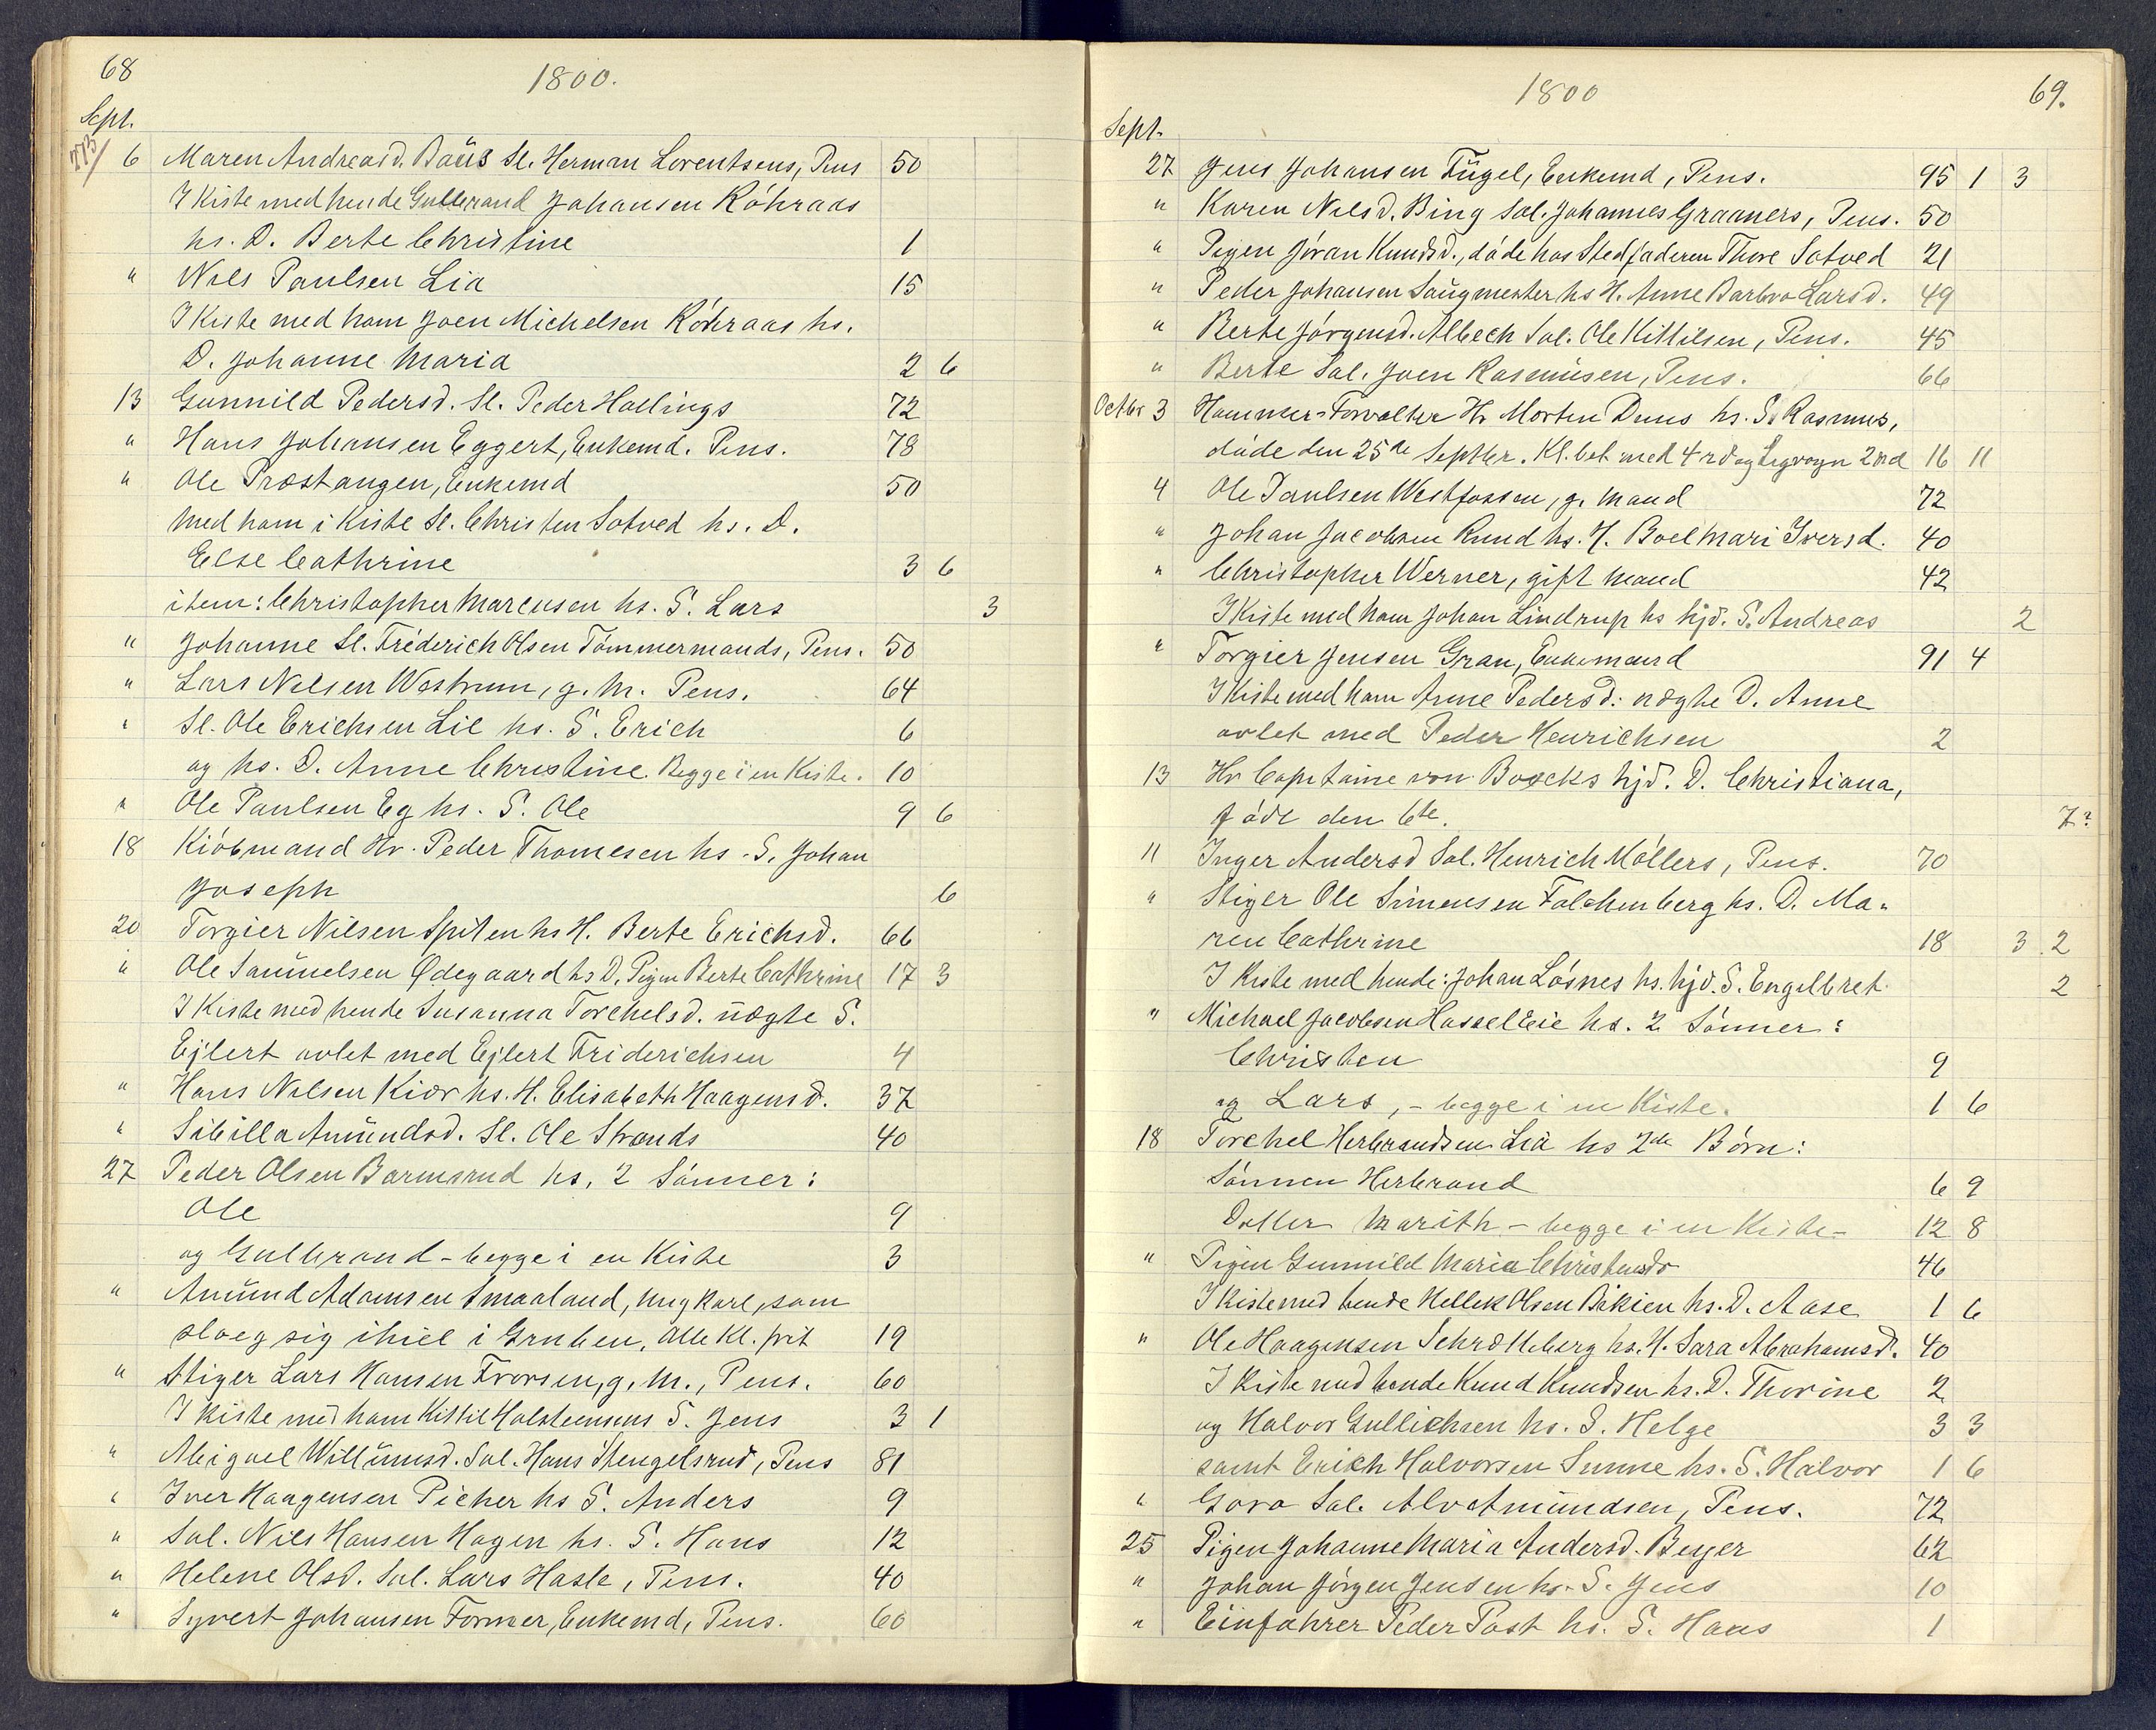 68
1800.
Sept.
273/
6 Maren Andreasd. Baüs Sl. Herman Lorentsens, Pens 50
I Kiste med hende Gulbrand Johansen Róhraas
hs. D. Berte Christine 1
" Nils Paulsen Lia 15
I Kiste med ham Joen Michelsen Róhraas hs.
D. Johanne Maria 2 6
13 Gunnild Pedersd. Sl. Peder Hallings 72
" Hans Johansen Eggert, Enkemd. Pens. 78
" Ole Præstangen, Enkemd 50
med ham i Kiste Sl. Christen Sotved hs. D.
Else Cathrine 3 6
item: Christopher Marcusen hs. S. Lars 3
" Johanne Sl. Fréderich Olsen Tómmermands, Pens. 50
" Lars Nelsen Wæstrum, g. M. Pens. 64
" Sl. Ole Erichsen Lie hs. S. Erich 6
og hs. D. Anne Christine. Begge i en Kiste. 10
" Ole Paulsen Eg hs. S. Ole 9 6
18 Kióbmand Hr. Peder Thomesen hs. S. Johan
Joseph 6
20 Torgier Nilsen Spiten hs H. Berte Erichsd. 66
" Ole Samüelsen Ødegaard hs D. Pigen Berte Cathrine 17 3
I Kiste med hende Susanna Torchelsd. uægte S.
Ejlert avlet med Ejlert Friderichsen 4
" Hans Nelsen Kiær hs. H. Elisabeth Haagensd. 37
" Sibilla Amündsd. Sl. Ole Strands 40
27 Peder Olsen Barmsrud hs. 2 Sónner:
Ole 9
og Gulbrand - begge i en Kiste 3
" Amünd Adamsen Smaaland, Ung Karl, som
sloeg sig ihiel i Gruben, Alle Kl. frit 19
" Stiger Lars Hansen Frorsen, g. M., Pens. 60
I Kiste med ham Kittil Halsteensens S. Jens 3 1
" Abigael Willümsd. Sal. Hans Stengelsrud, Pens 81
" Iver Haagensen Picher hs S. Anders 9
" Sal. Nils Hansen Hagen hs. S. Hans 12
" Helene Olsd. Sal. Lars Hasle, Pens. 40
" Syvert Johansen Former, Enkemd, Pens. 60
1800
69.
Sept.
27 Jens Johansen Fügel, Enkemd, Pens. 95 1 3
" Karen Nelsd. Bing Sal. Johannes Graaners, Pens. 50
" Pigen Jóran Knudsd., dóde hos Stedfaderen Thore Sotved 21
" Peder Johansen Saügmester hs H. Anne Barbro Larsd. 49
" Berte Jórgensd. Albech Sal. Ole Kittilsen, Pens. 45
" Berte Sal. Joen Rasmüsen, Pens. 66
Octbr 3 Hammer-Forvalter Hr Morten Duus hs. S. Rasmus,
dóde den 25de Septbr. Kl. bet. med 4 rd og Ligvogn 2 rd 16 11
4 Ole Paulsen Westfossen, g. Mand 72
" Johan Jacobsen Rund hs. H. Boel Mari Iversd. 40
" Christopher Werner, gift Mand 42
I Kiste med ham Johan Lindrup hs hjd. S. Andreas 2
" Torgier Jensen Gran, Enkemand 91 4
I Kiste med ham Anne Pedersd: uægte D. Anne
avlet med Peder Henrichsen 2
13 Hr Capitaine von Boecks hjd. D. Christiana,
fódt den 6te. 7?
11 Inger Andersd Sal. Henrich Móllers, Pens. 70
" Stiger Ole Simensen Falchenberg hs. D. Ma-
ren Cathrine 18 3 2
I Kiste med hende: Johan Lósnes hs. hjd. S. Engelbret 2
" Michael Jacobsen Hassel Eie hs. 2 Sónner:
Christen 9
og Lars, - begge i en Kiste. 1 6
18 Torchel Herbrandsen Lia hs 2de Bórn:
Sónnen Herbrand 6 9
Datter Marith - begge i en Kiste - 12 8
" Pigen Gunnild Maria Christensdr 46
I Kiste med hende Hellek Olsen Bakien hs. D. Aase 1 6
" Ole Haagensen Schrætteberg hs. H. Sara Abrahamsd. 40
I Kiste med hende Knud Knudsen hs. D. Thorine 2
og Halvor Gullichsen hs. S. Helge 3 3
samt Erich Halvorsen Sunne hs. S. Halvor 1 6
" Goro Sal. Alv Amündsen, Pens. 72
25 Pigen Johanne Maria Andersd. Beyer 62
" Johan Jórgen Jensen hs. S. Jens 10
" Einfahrer Peder Post hs. S. Hans 1